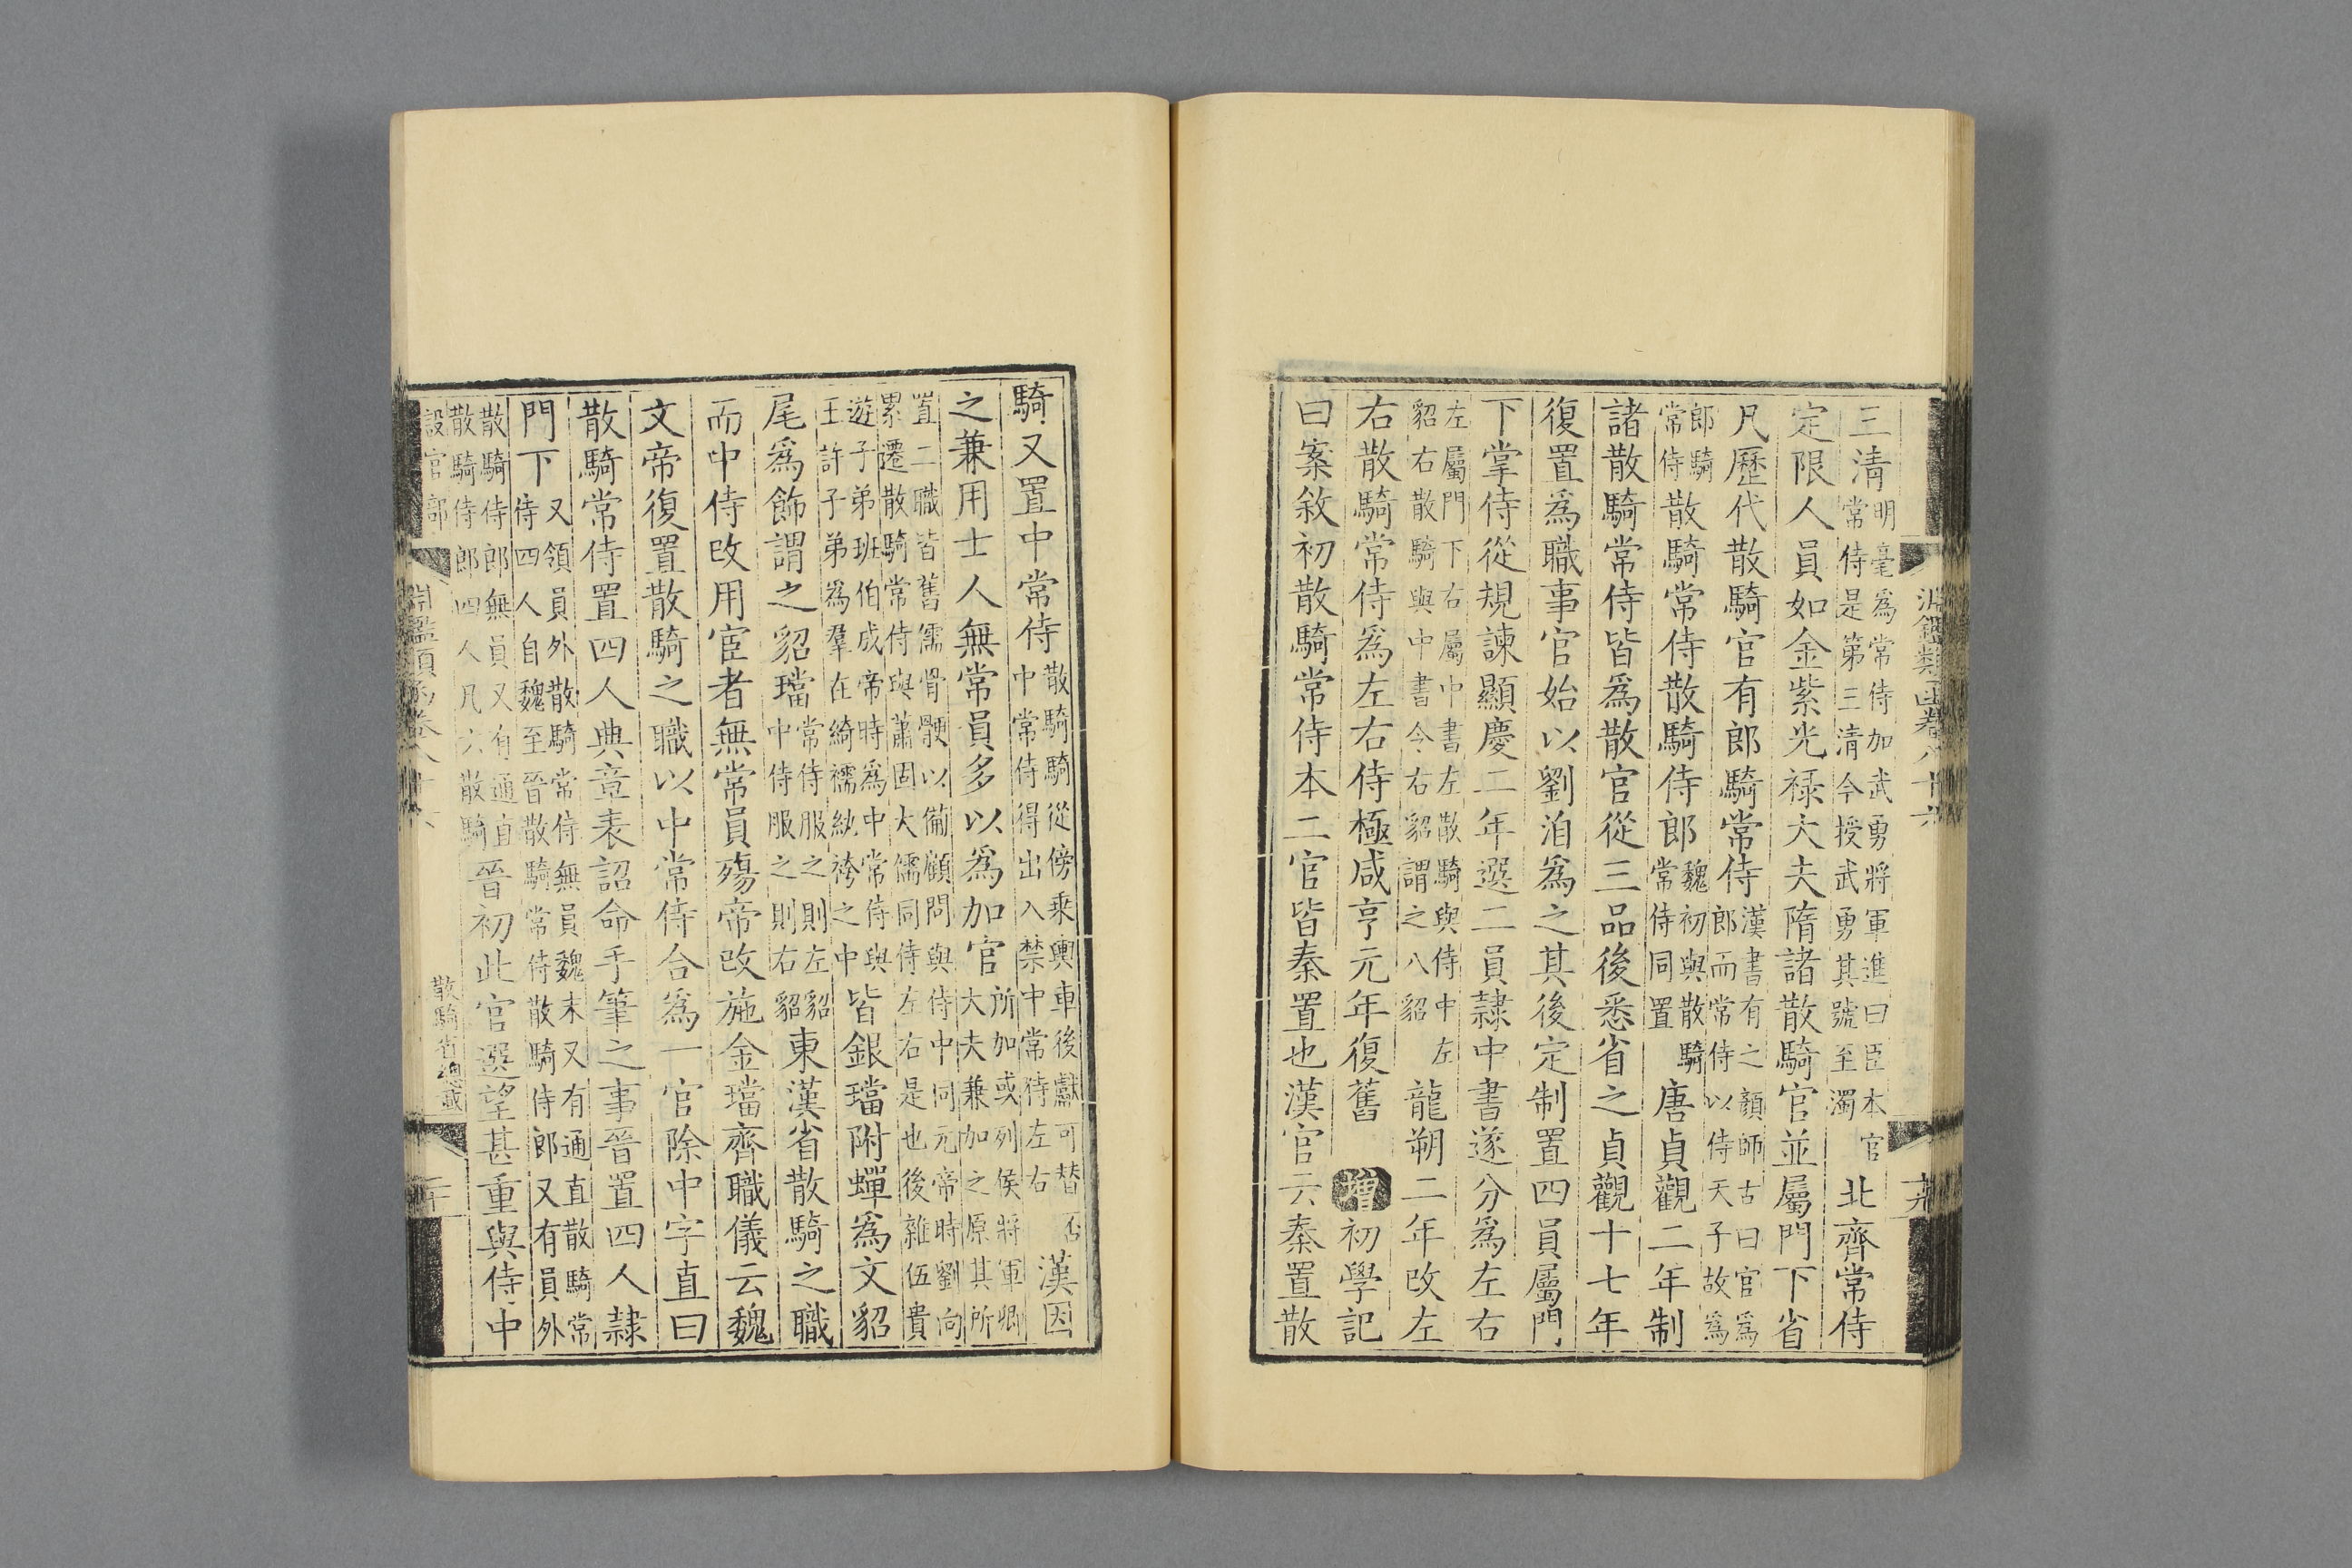 淵鑑類函卷八十六
十九
三清明毫爲常侍加武勇將軍進曰臣本官常侍是第三清今授武勇其號至濁北齊常侍
定限人員如金紫光祿大夫隋諸散騎官並屬門下省
凡歷代散騎官有郎騎常侍漢書有之顏師古曰官爲郎而常侍以侍天子故爲
郎騎常侍散騎常侍散騎侍郎魏初與散騎常侍同置唐貞觀二年制
諸散騎常侍皆爲散官從三品後悉省之貞觀十七年
復置爲職事官始以劉洎爲之其後定制置四員屬門
下掌侍從規諫顯慶二年選二員隷中書遂分爲左右
左屬門下右屬中書左散騎與侍中左貂右散騎與中書令右貂謂之八貂龍朔二年改左
右散騎常侍爲左右侍極咸亨元年復舊 增初學記
曰案敘初散騎常侍本二官皆秦置也漢官云秦置散
騎又置中常侍散騎騎從傍乘輿車後獻可替否中常侍得出入禁中常侍左右漢因
之兼用士人無常員多以爲加官所加或列侯將軍卿大夫兼加之原其所
置二職皆舊儒骨骾以備顧問與侍中同元帝時劉向累遷散騎常侍與蕭固大儒同侍左右是也後雜伍貴
遊子弟班伯成帝時爲中常侍與王許子弟爲羣在綺襦紈袴之中皆銀璫附蟬爲文貂
尾爲飾謂之貂璫常侍服之則左貂中侍服之則右貂東漢省散騎之職
而中侍改用宦者無常員殤帝改施金璫齊職儀云魏
文帝復置散騎之職以中常侍合爲一官除中字直曰
散騎常侍置四人典章表詔命手筆之事晉置四人隷
門下又領員外散騎常侍無員魏末又有通直散騎常侍四人自魏至晉散騎常侍散騎侍郎又有員外
散騎侍郎無員又有通直散騎侍郎四人凡六散騎晉初此官選望甚重與侍中
設官部
淵鑑類函卷八十六
散騎省總載
二十